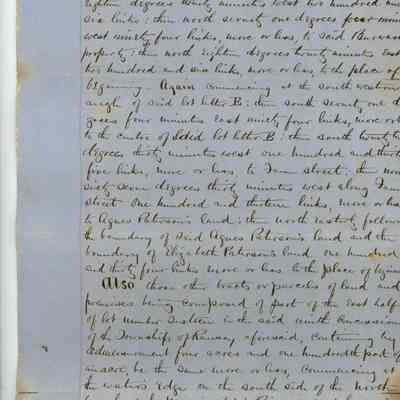 eighteen degrees thirty minutes west two hundred and
six links: then north seventy one degrees four min
west ninety four links, more or less, to said
property: then north eighteen degrees twenty minutes east
two hundred and six links, more or less, to the place of
beginning. Again commencing at the south western
angle of said lot letter B: then south seventy one d
grees four minutes east ninety four links, more or l
to the centre of said lot letter B: then south twenty t
degrees thirty minutes west one hundred and thirt
five links, more or less, to street: then nor
sixty seven degrees thirty minutes west along
street one hundred and thirteen links, more or les
to Agnes Paterson's land: then north westerly followi
the boundary of said Agnes Paterson's land and the
boundary of Elizabeth Paterson's land one hundred
and thirty four links more or less to the place of begin
Also those other tracts or parcels of land and
premises being composed of part of the east half
of lot number sixteen in the said ninth concession
of the Township of Ramsay aforesaid, containing by
admeasurement four acres and one hundredth part of
an acre, be the same more or less, Commencing at
the water's edge on the south side of the North